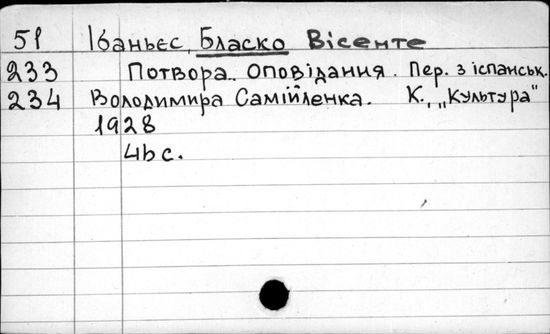 51 Ібаньєс, Бласко Вісенте
233 Потвора. Оповідання. Пер. з іспанськ.
234 Володимира Самійленка. К., „Культура"
1928
4bc.